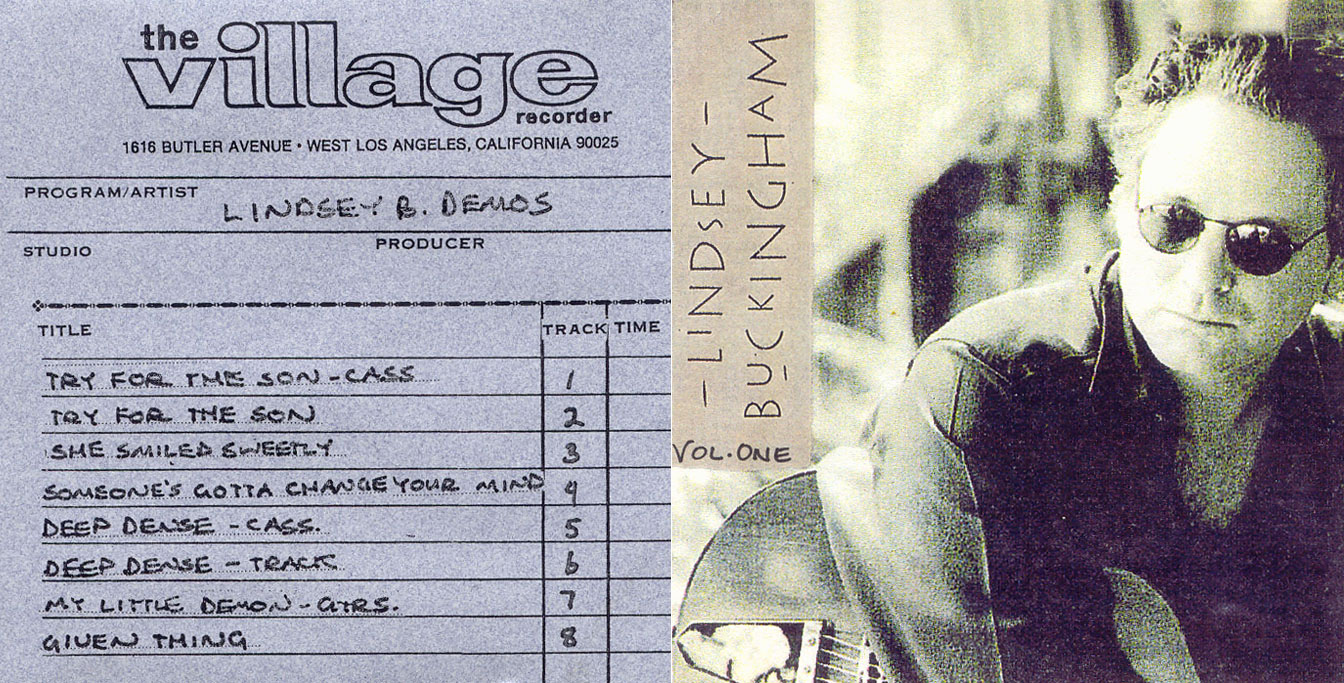 the
village
recorder
1616 BUTLER AVENUE • WEST LOS ANGELES, CALIFORNIA 90025
PROGRAM/ARTIST LINDSEY B. DEMOS
STUDIO PRODUCER
TITLE TRACK TIME
TRY FOR THE SON - CASS 1
TRY FOR THE SON 2
SHE SMILED SWEETLY 3
SOMEONE'S GOTTA CHANGE YOUR MIND 4
DEEP DENSE - CASS. 5
DEEP DENSE - TRACK 6
MY LITTLE DEMON - GTRS. 7
GIVEN THING 8
- LINDSEY -
BUCKINGHAM
VOL. ONE